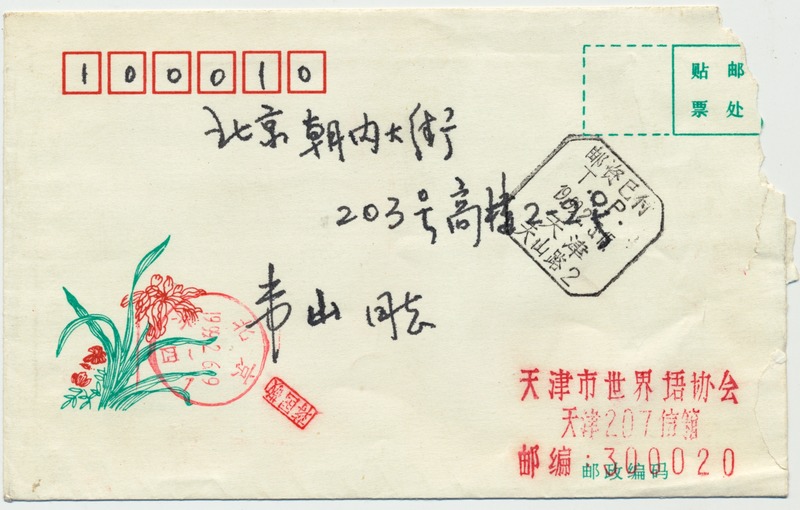 100010
贴 邮
票 处
北京朝内大街
203号高楼2-2号
韦山 同志
邮资已付
T.P.
天津
天山路2
北京
天津市世界语协会
天津207信箱
邮编:300020
邮政编码